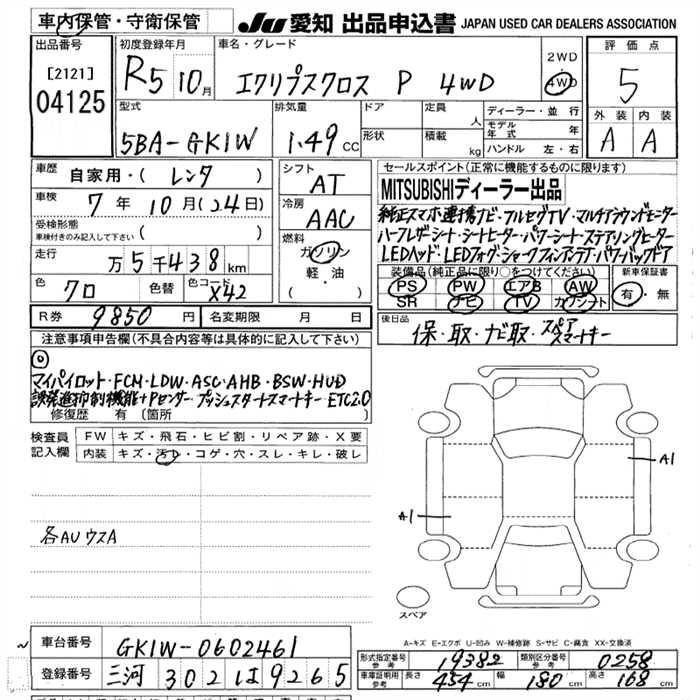 車内保管・守衛保管
JU 愛知 出品申込書 JAPAN USED CAR DEALERS ASSOCIATION
出品番号
[2121]
04125
初度登録年月
R5 10月
車名・グレード
エクリプスクロス P 4WD
2WD
4WD
評価点
5
外装 内装
A A
型式
5BA-GK1W
排気量
1.49 CC
ドア
形状
定員
人
積載
kg
ディーラー・並行
モデル年式 年
ハンドル 左・右
車歴
自家用・(レンタ)
車検
7年10月(24日)
受検形態
車検付きのみ記入して下さい ( )
走行
万5千438km
色
クロ
色替
色コード
X42
シフト
AT
冷房
AAC
燃料
ガソリン
軽・油
R券 9850円 名変期限 月 日
セールスポイント(正常に機能するものに限ります)
MITSUBISHIディーラー出品
純正スマホ連携ナビ・フルセグTV・マルチアラウンドモニター
ハーフレザーシート・シートヒーター・パワーシート・ステアリングヒーター
LEDヘッド・LEDフォグ・シャークフィンアンテナ・パワーバックドア
装備品(純正品に限り○をつけてください)
PS PW エアB AW
SR ナビ TV カワシート
新車保証書
有・無
後日品
保・取・ナビ取・スペアスマートキー
注意事項申告欄(不具合内容等は具体的に記入して下さい)
◎
マイパイロット・FCM・LDW・ASC・AHB・BSW・HUD
誤発進抑制機能+Pセンサー・プッシュスタートスマートキー・ETC2.0
修復歴 有 (箇所 )
検査員記入欄
FW キズ・飛石・ヒビ割・リペア跡・X要
内装 キズ・汚レ・コゲ・穴・スレ・キレ・破レ
各AUウスA
A1
A1
スペア
A-キズ E-エクボ U-凹み W-補修跡 S-サビ C-腐食 XX-交換済
車台番号 GK1W-0602461
登録番号 三河 302 は 9265
形式指定番号参考 19382 類別区分番号参考 0258
車庫証明用参考 長さ 454cm 幅 180cm 高さ 168cm